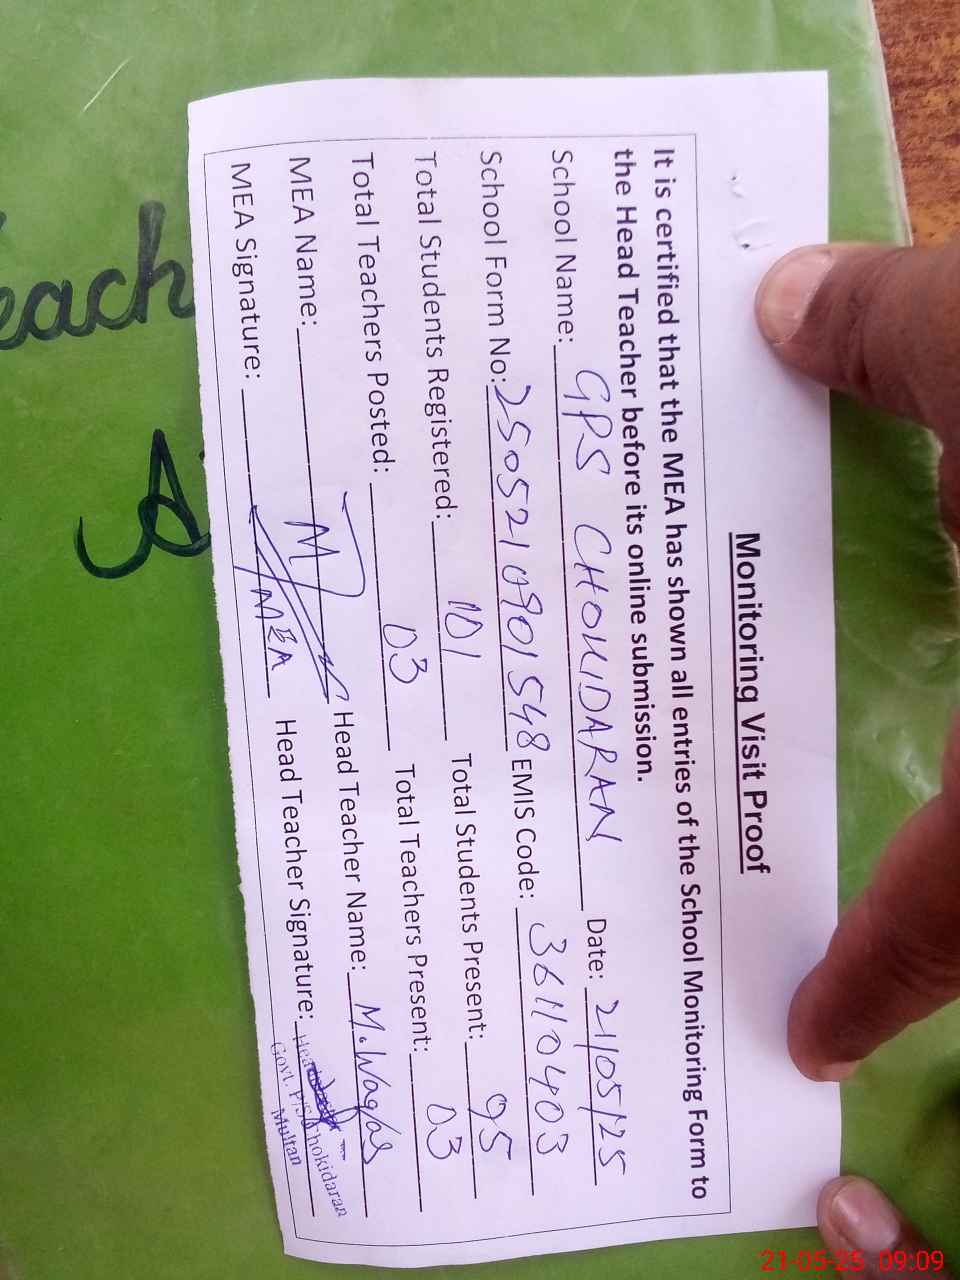 Monitoring Visit Proof
It is certified that the MEA has shown all entries of the School Monitoring Form to
the Head Teacher before its online submission.
School Name: GPS CHOKIDARAN Date: 21/05/25
School Form No: 2505210901548 EMIS Code: 36110403
Total Students Registered: 101 Total Students Present: 95
Total Teachers Posted: 03 Total Teachers Present: 03
MEA Name: Head Teacher Name: M. Waqas
MEA Signature: MEA Head Teacher Signature:
Govt. P/S Chokidaran
Multan
each
21-05-25 09:09